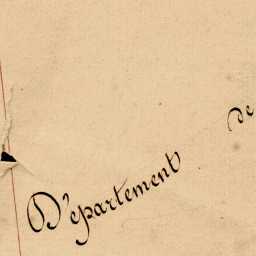 Département de